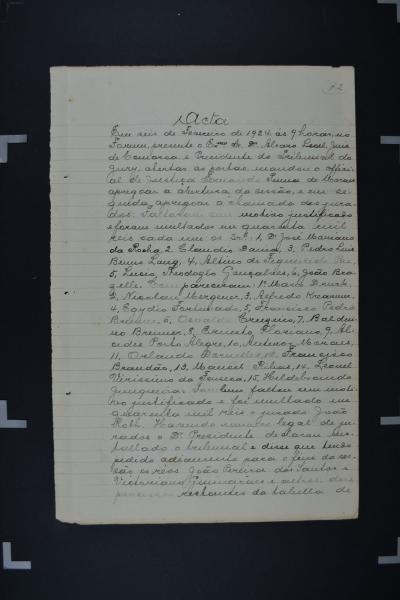 72
Acta
Em seis de Fevereiro de 1924, ás 9 horas, no
Forum, presente o Exmo Sr. Dr. Alvaro Leal, Juiz
de Comarca e Presidente do Tribunal do
Jury, abertas as portas, mandou o offici-
al de Justiça Fernando Penna de Moraes
apregoar a abertura da sessão, e em se-
guida, apregoar a chamada dos jura-
dos. Faltaram sem motivo justificado
e foram multados em quarenta mil
reis cada um os Srs: 1, Dr. José Mariano
da Rocha, 2, Claudio 3, Pedro Luis
4, Albino de Figueiredo
5, Lucio Theologio Gonçalves, 6, João Bra-
Compareceram: 1º Marco
2, Newton 3, Alfredo
4, Egydio Fortunato, 5, Francisco Pedro
Brenner, 6, Osvaldo 7, Baldui-
no Brenner, 8, Ernesto Floriano, 9, Al-
cides Porto Alegre, 10, Antenor Moraes,
11, Orlando 12, Francisco
Brandão, 13, Manoel Ribas, 14, Leonel
Verissimo da Fonseca, 15, Hildebrando
Junqueira. Tambem faltou sem moti-
vo justificado e foi multado em
quarenta mil reis o jurado João
Roth. Havendo numero legal de ju-
rados o Dr. Presidente declarou ins-
tallado o tribunal e disse que tendo
pedido adiamento para o fim da ses-
são os réos João Pereira dos Santos e
Victoriano Guimarães e autores dos
processos restantes da tabella de